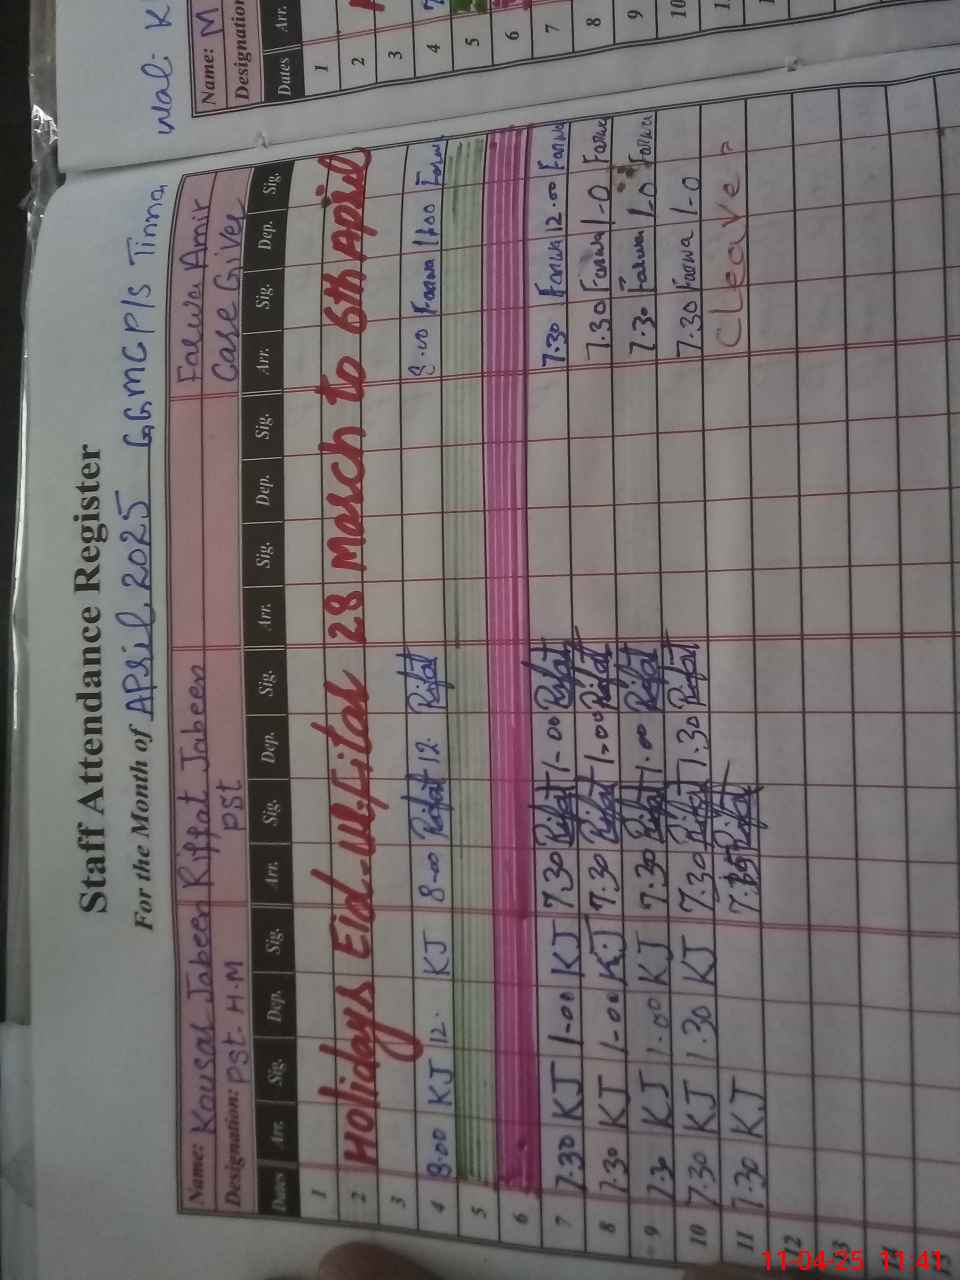 Staff Attendance Register
For the Month of APril 2025 GGMCP/S Tinna
Name: Kousar Jabeen Riffat Jabeen Farwa Amir
Designation: PST. H.M PST Case Giver
Dates Arr. Sig. Dep. Sig. Arr. Sig. Dep. Sig. Arr. Sig. Dep. Sig. Arr. Sig. Dep. Sig.
1
2 Holidays Eid-ul-fitar 28 March to 6th April
3
4 8.00 KJ 12. KJ 8-00 Rifat 12. Rifat 8.00 Farwa Farwa
5
6
7 7.30 KJ 1-00 KJ 7.30 Rifat 1-00 Rifat 7.30 Farwa 12.00 Farwa
8 7.30 KJ 1-00 KJ 7.30 Rifat 1-00 Rifat 7.30 Farwa 1-0 Farwa
9 7.30 KJ 1.00 KJ 7.30 Rifat 1.00 Rifat 7.30 Farwa 1-0 Farwa
10 7.30 KJ 1.30 KJ 7.30 Rifat 1.30 Rifat 7.30 Farwa 1-0
11 7.30 KJ Rifat CLeave
12
13
14
15
Name: M
Designation
Dates Arr.
1
2
3
4
5
6
7
8
9
10
11-04-25 11:41